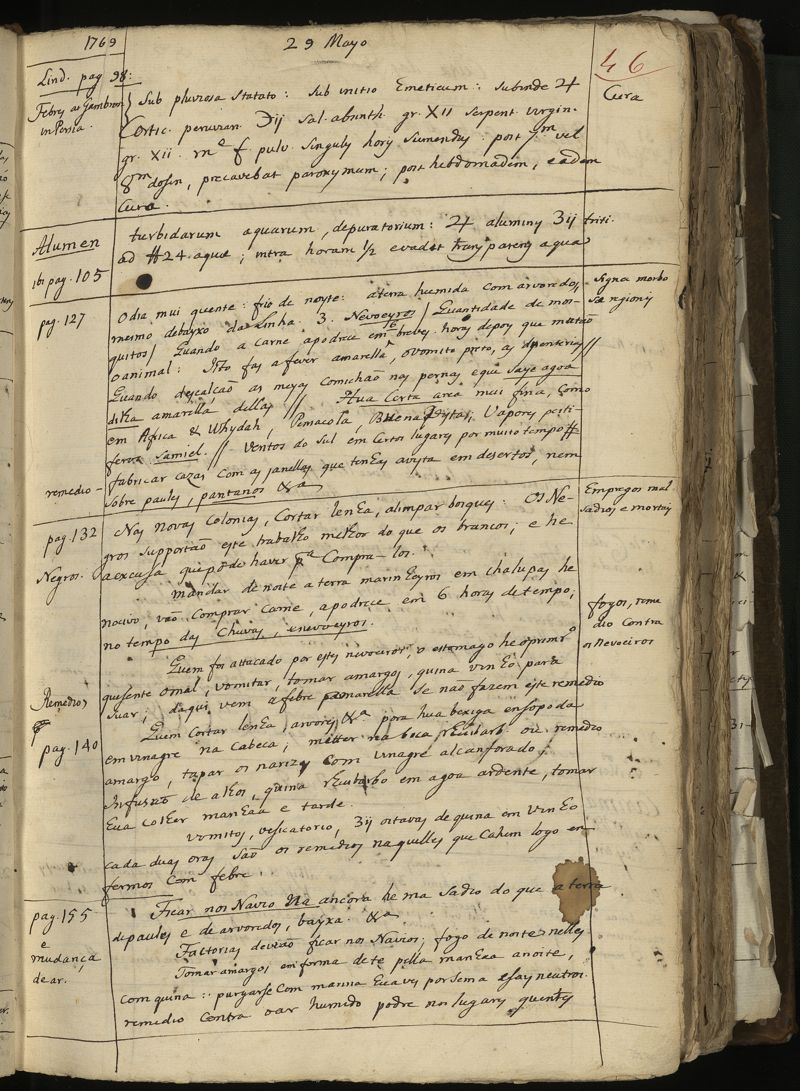 1769
29 Mayo
46
Lind. pag 98:
Febres ao Gambron
in Persia.
Sub pluviosa Statato: Sub initio Emeticum: Subinde ℞
Cortic. peruvian. ℈ij Sal. absinth. gr. XII Serpent. virgin.
gr. XII. m.ᵉ f. pulv. Singulis horis Sumendus: post 7ᵐ vel
8ᵐ dosin, precavebat paroxymum; post hebdomadem, eadem
Cura.
Cura
Alumen
ibi pag. 105
turbidarum aquarum, depuratorium: ℞ aluminis ʒij triti.
ad ℔24. aquæ; intra horam 1/2 evadet transparens aqua
pag. 127
O dia mui quente: frio de noyte: a terra humida com arvoredos,
mesmo debayxo da Linha. 3. Nevoeyros / Quantidade de mos-
quitos / Quando a carne apodrece em breves horas depoys que matão
o animal: Isto fas a fever amarella, o vomito preto, as dysenterias //
Quando descalcão as meyas Comichão nas pernas e que Saye agoa
amarella dellas // Hua Certa area mui fina, Como
em Africa & Whydah, Pensacola, Vapores pesti-
feros Samiel. // Ventos do Sul em Certos lugares por muito tempo #
remedio -
fabricar cazas Com as janellas que tenhas a vista em desertos, nem
Sobre paules, pantanos &ª
Signa morbo
sæ regionis
pag. 132
Negros.
Nas novas Colonias, Cortar lenha, alimpar bosques: Os Ne-
gros supportão este trabalho melhor do que os brancos; e he
a excusa que póde haver pª Compra-los.
Empregos mal
Sadios e mortais
mandar de noite a terra marinheyros em Chalupas he
nocivo, vão Comprar Carne, apodrece em 6 horas de tempo,
no tempo das Chuvas, e nevoeyros.
fogos, reme
dio Contra
os nevoeiros
Quem for attacado por estes nevoeiros, o estomago he o primrº
que sente o mal, vomitar, tomar amargos, quina vinho para
Suar, daqui vem a febre amarella Se não fazem este remedio
Remedios
pag. 140
Quem Cortar lenha, arvores &ª pora hua bexiga ensopada
em vinagre na Cabeca; metter na boca rhuibarb. ou remedio
amargo, tapar os narizes Com vinagre alcanforado;
Infusão de alhos, quina rhuibarbo em agoa ardente, tomar
hua Colher manhaa e tarde.
Vomitos, vesicatorio, 3ij oitavas de quina em vinho
cada duas oras São os remedios naquelles que Cahem logo en
fermos Com febre.
pag. 155
e
mudança
de ar.
Ficar nos Navio na ancora he ma Sadio do que a terra
de paules e de arvoredos, bayxa. &ª
Factorias devião ficar nos Navios; fogo de noite nelles
Tomar amargos em forma de te pella manhaa a noite,
Com quina :: purgarse Com manna hua ves por Semana e Says neutros.
remedio Contra o ar humido podre nos lugares quentes